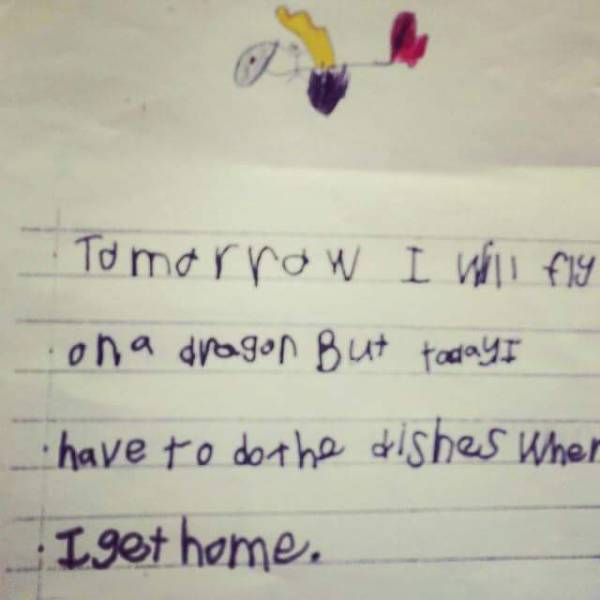 Tomorrow I will fly
on a dragon But today I
have to do the dishes When
I get home.